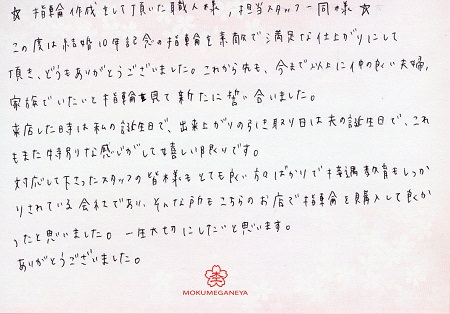 ☆ 指輪作成をして頂いた職人様,担当スタッフ一同様 ☆
この度は結婚10年記念の指輪を素敵で満足な仕上がりにして
頂き、どうもありがとうございました。これから先も、今まで以上に仲の良い夫婦,
家族でいたいと指輪を見て新たに誓い合いました。
来店した日時は私の誕生日で、出来上がりの引き取り日は夫の誕生日で、これ
もまた特別な感じがして嬉しい限りです。
対応して下さったスタッフの皆様もとても良い方々ばかりで接遇教育もしっか
りされている会社であり、そんな所もこちらのお店で指輪を購入して良か
ったと思いました。一生大切にしたいと思います。
ありがとうございました。
MOKUMEGANEYA